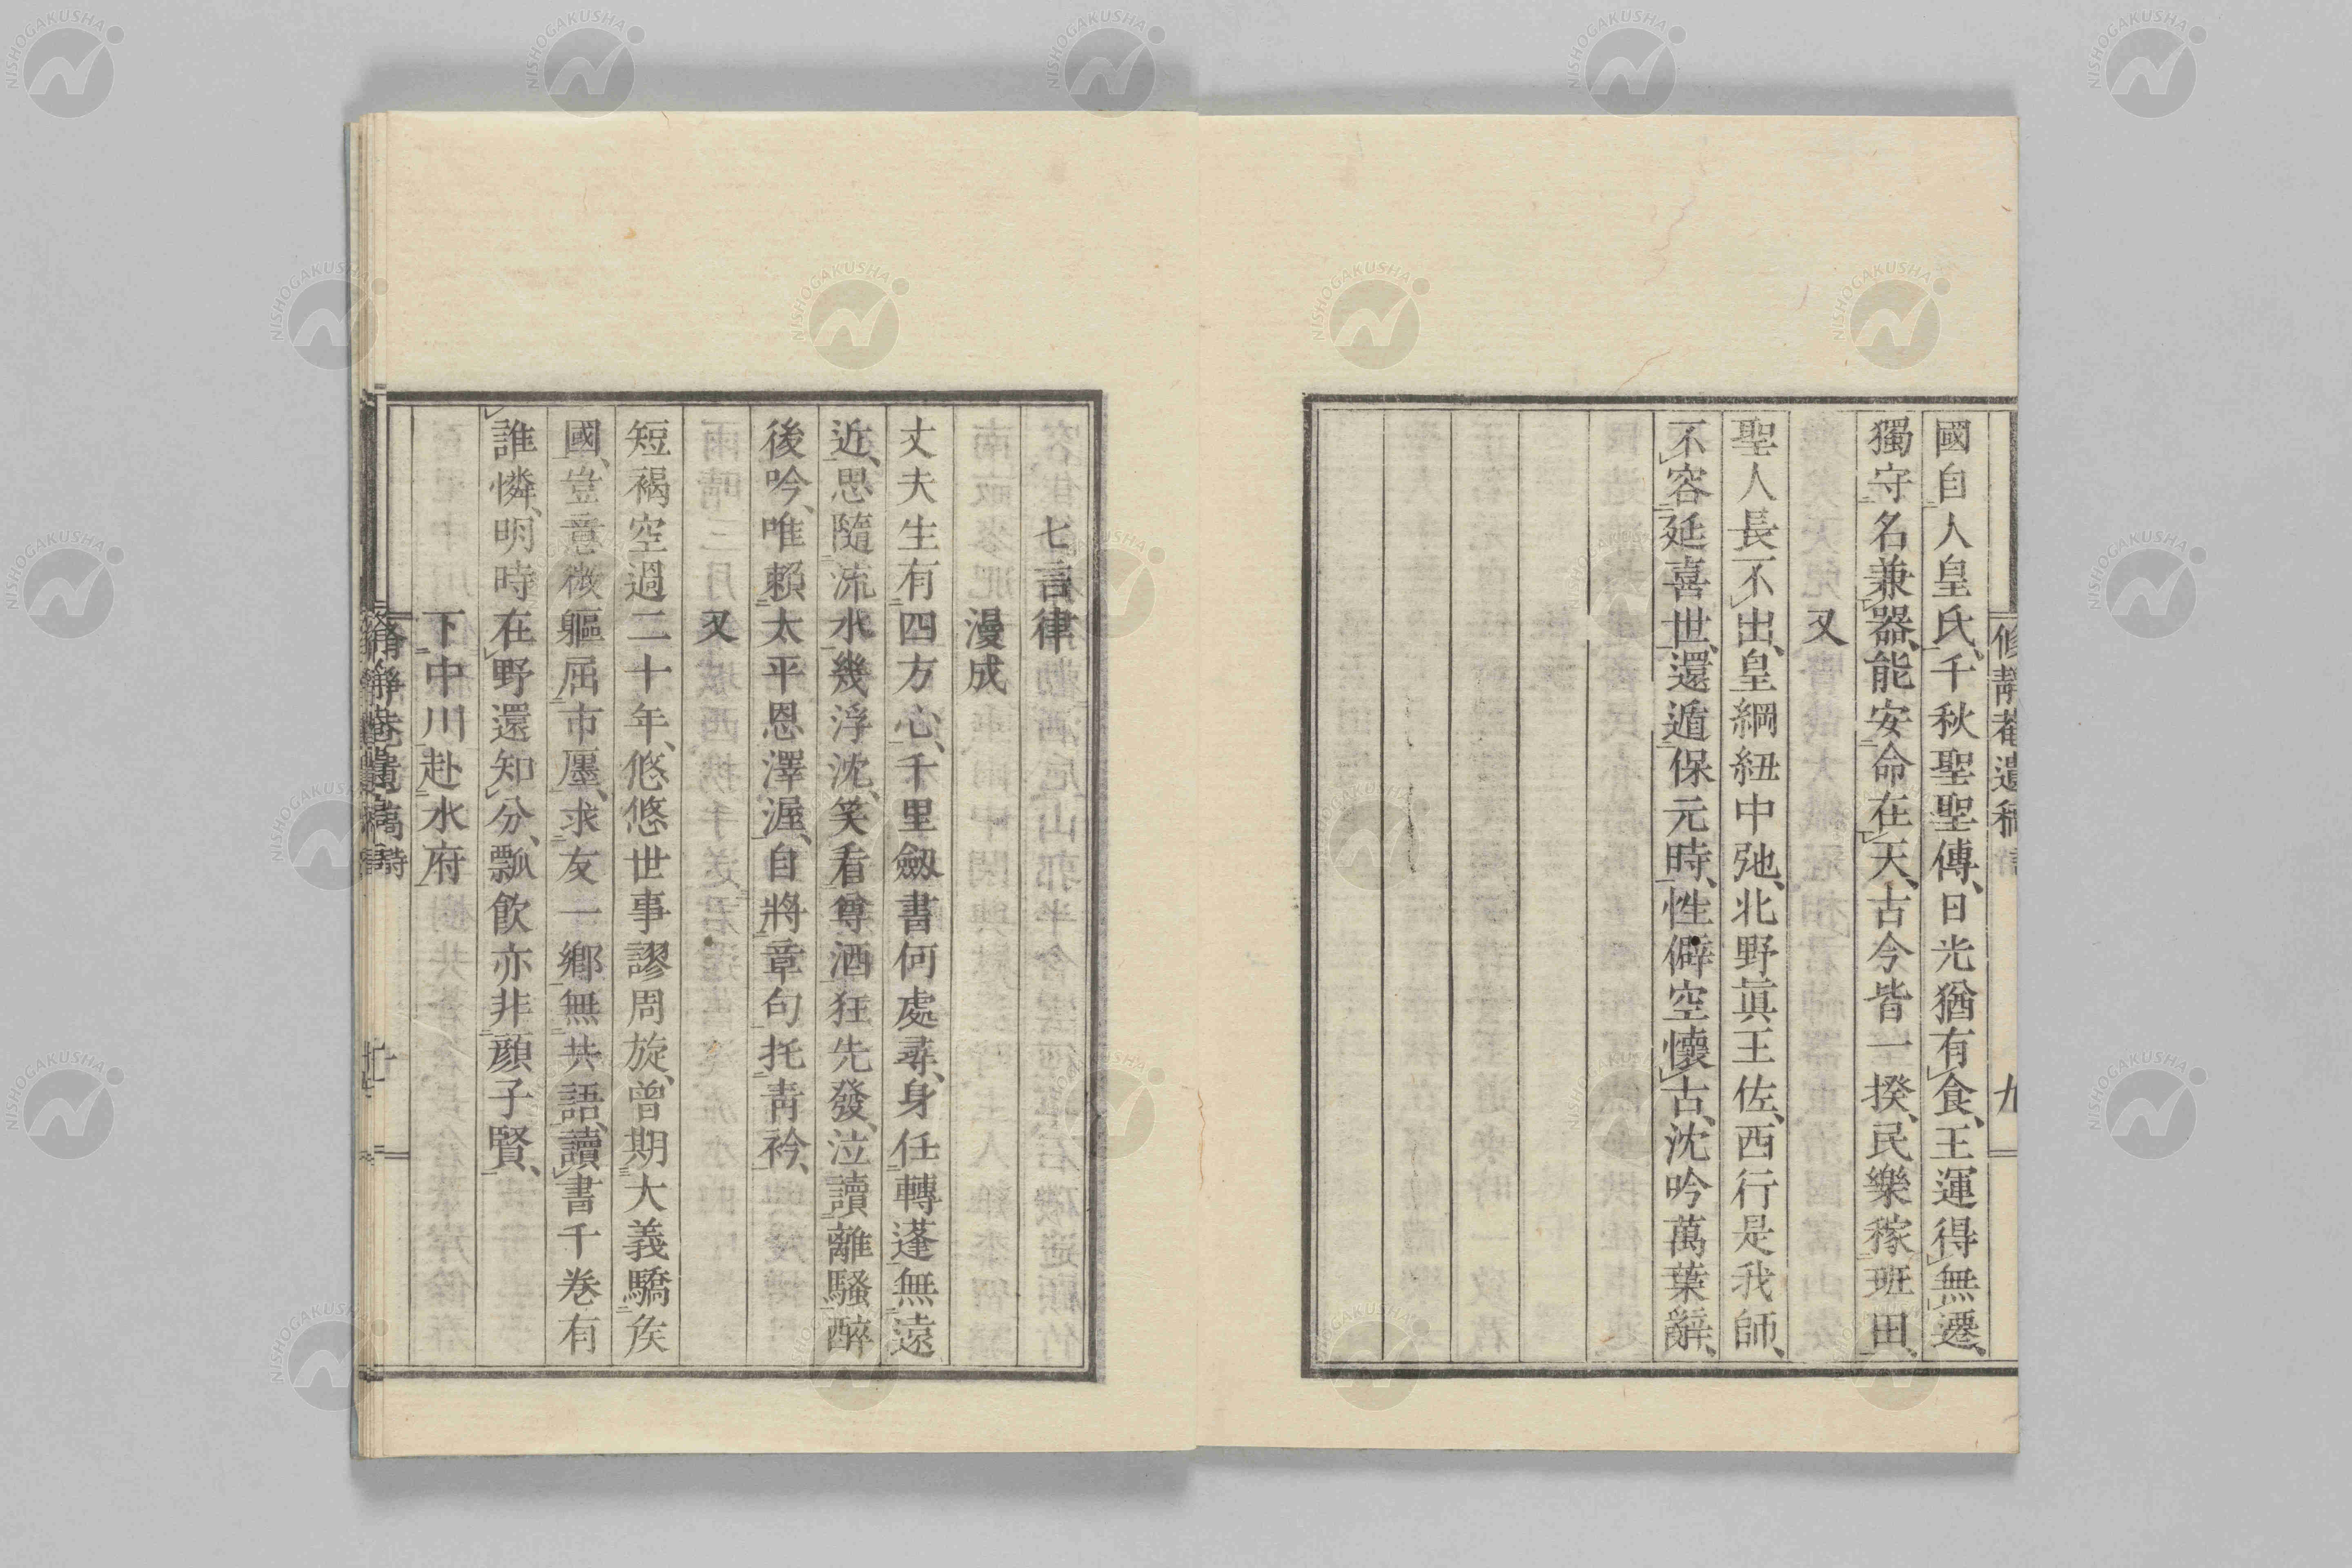 修靜菴遺稿
九
國自人皇氏、千秋聖聖傳、日光猶有食、王運得無遷、
獨守名兼器、能安命在天、古今皆一揆、民樂稼班田、
又
聖人長不出、皇綱紐中弛、北野眞王佐、西行是我師、
不容延喜世、還遁保元時、性僻空懷古、沈吟萬葉辭、
七言律
漫成
丈夫生有四方心、千里劒書何處尋、身任轉蓬無遠
近、思隨流水幾浮沈、笑看尊酒狂先發、泣讀離騷醉
後吟、唯賴太平恩澤渥、自將章句托靑衿、
又
短褐空過二十年、悠悠世事謬周旋、曾期大義驕侯
國、豈意微軀屈市廛、求友一鄕無共語、讀書千卷有
誰憐、明時在野還知分、瓢飮亦非顏子賢、
下中川赴水府
NISHOGAKUSHA